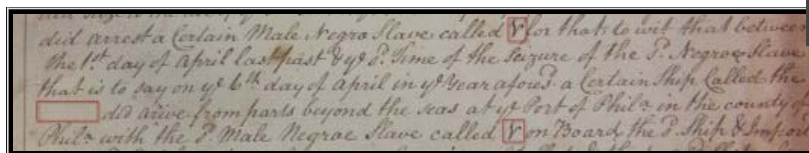 did arrest a Certain Male Negro Slave called Y for that to wit that between
the 1st day of April last past & ye sd. Time of the Seizure of the sd. Negroe Slave
that is to say on ye 6th day of April in ye Year afousd. a Certain Ship Called the
did arive from parts beyond the seas at ye Port of Phila in the county of
Phila with the sd. Male Negroe Slave called Y on Board the sd. Ship & Impor